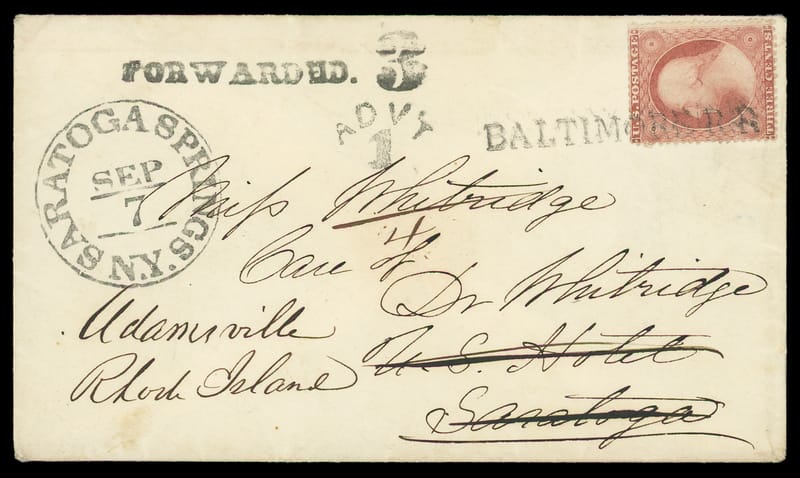 FORWARDED. 3
ADVT
1
BALTIMORE R.R
U.S. POSTAGE
THREE CENTS
SARATOGA SPRINGS. N.Y.
SEP
7
Miss Whitridge
4
Care of
Dr Whitridge
U.S. Hotel
Saratoga
Adamsville
Rhode Island